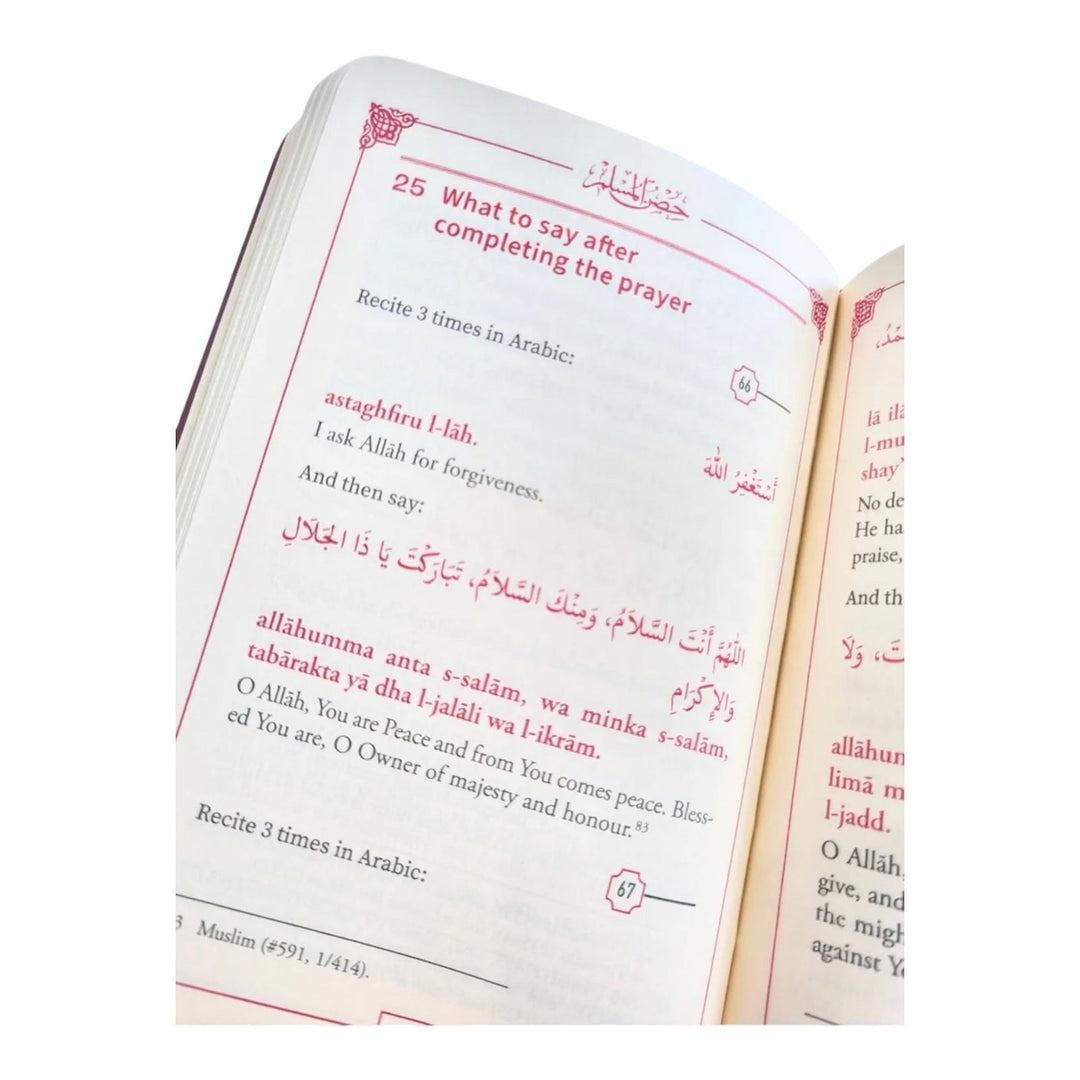 حِصْنُ الْمُسْلِمِ
25 What to say after
completing the prayer
Recite 3 times in Arabic:
66
أَسْتَغْفِرُ اللَّهَ
astaghfiru l-lāh.
I ask Allāh for forgiveness.
And then say:
اللَّهُمَّ أَنْتَ السَّلاَمُ، وَمِنْكَ السَّلاَمُ، تَبَارَكْتَ يَا ذَا الْجَلَالِ
وَالإِكْرَامِ
allāhumma anta s-salām, wa minka s-salām,
tabārakta yā dha l-jalāli wa l-ikrām.
O Allāh, You are Peace and from You comes peace. Bless-
ed You are, O Owner of majesty and honour.83
Recite 3 times in Arabic:
67
3 Muslim (#591, 1/414).
lā
l-mu
shay’
No de
He ha
praise,
And th
، وَلَا
allāhum
limā m
l-jadd.
O Allāh,
give, and
the migh
against Y